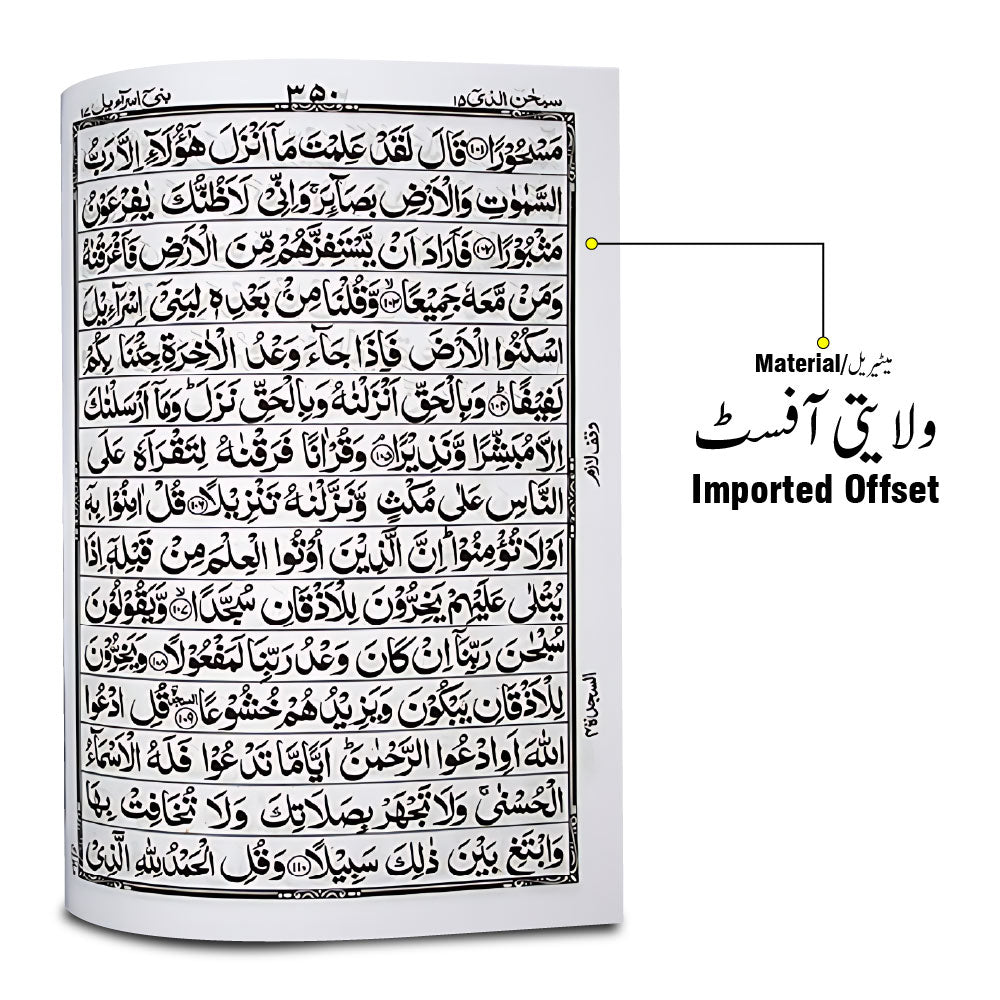 سبحٰن الذیٓ ۱۵
۳۵۰
بنیٓ اسرآءیل ۱۷
مَسْحُوْرًا ۝۱۰۱ قَالَ لَقَدْ عَلِمْتَ مَاۤ اَنْزَلَ هٰۤؤُلَآءِ اِلَّا رَبُّ
السَّمٰوٰتِ وَالْاَرْضِ بَصَآئِرَ ۚ وَاِنِّیْ لَاَظُنُّكَ یٰفِرْعَوْنُ
مَثْبُوْرًا ۝۱۰۲ فَاَرَادَ اَنْ یَّسْتَفِزَّهُمْ مِّنَ الْاَرْضِ فَاَغْرَقْنٰهُ
وَمَنْ مَّعَهٗ جَمِیْعًا ۝۱۰۳ۙ وَّقُلْنَا مِنْۢ بَعْدِهٖ لِبَنِیْۤ اِسْرَآءِیْلَ
اسْكُنُوا الْاَرْضَ فَاِذَا جَآءَ وَعْدُ الْاٰخِرَةِ جِئْنَا بِكُمْ
لَفِیْفًا ۝۱۰۴ؕ وَبِالْحَقِّ اَنْزَلْنٰهُ وَبِالْحَقِّ نَزَلَ ؕ وَمَاۤ اَرْسَلْنٰكَ
اِلَّا مُبَشِّرًا وَّنَذِیْرًا ۝۱۰۵ۘ وَقُرْاٰنًا فَرَقْنٰهُ لِتَقْرَاَهٗ عَلَی
وقف لازم
النَّاسِ عَلٰی مُكْثٍ وَّنَزَّلْنٰهُ تَنْزِیْلًا ۝۱۰۶ قُلْ اٰمِنُوْا بِهٖۤ
اَوْ لَا تُؤْمِنُوْا ؕ اِنَّ الَّذِیْنَ اُوْتُوا الْعِلْمَ مِنْ قَبْلِهٖۤ اِذَا
یُتْلٰی عَلَیْهِمْ یَخِرُّوْنَ لِلْاَذْقَانِ سُجَّدًا ۝۱۰۷ۙ وَّیَقُوْلُوْنَ
سُبْحٰنَ رَبِّنَاۤ اِنْ كَانَ وَعْدُ رَبِّنَا لَمَفْعُوْلًا ۝۱۰۸ وَیَخِرُّوْنَ
لِلْاَذْقَانِ یَبْكُوْنَ وَیَزِیْدُهُمْ خُشُوْعًا ۝۱۰۹ السجدة قُلِ ادْعُوا
السجدة ۴
اللّٰهَ اَوِ ادْعُوا الرَّحْمٰنَ ؕ اَیًّا مَّا تَدْعُوْا فَلَهُ الْاَسْمَآءُ
الْحُسْنٰی ۚ وَلَا تَجْهَرْ بِصَلَاتِكَ وَلَا تُخَافِتْ بِهَا
وَابْتَغِ بَیْنَ ذٰلِكَ سَبِیْلًا ۝۱۱۰ وَقُلِ الْحَمْدُ لِلّٰهِ الَّذِیْ
Material/میٹیریل
ولایتی آفسٹ
Imported Offset